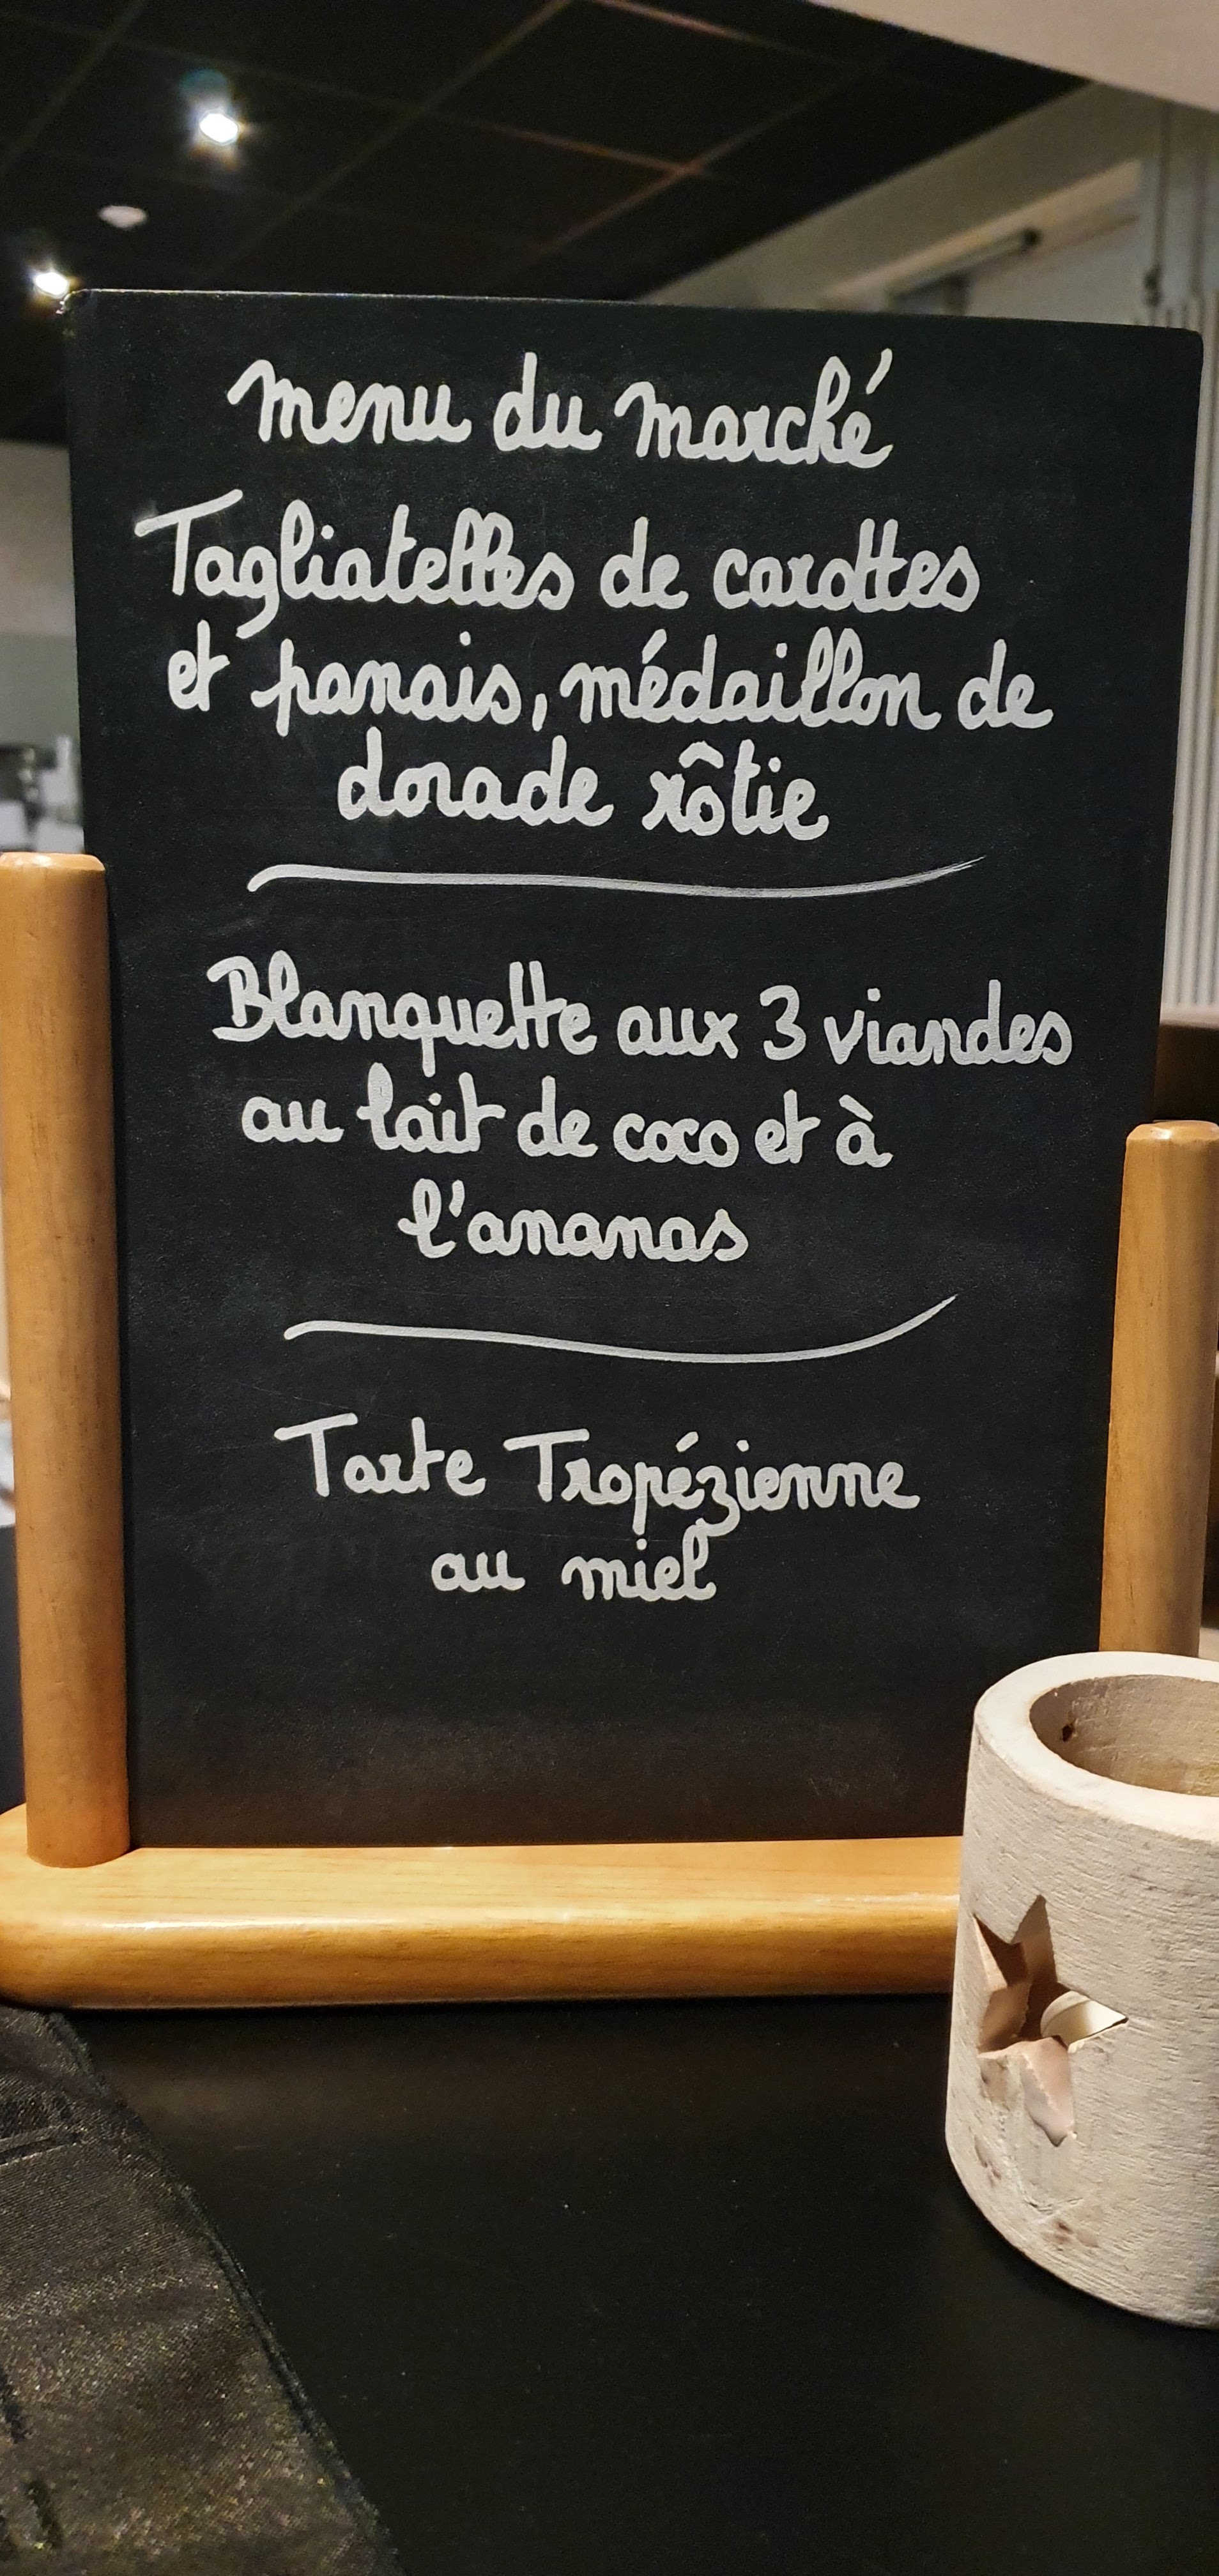 menu du marché
Tagliatelles de carottes
et panais, médaillon de
dorade rôtie
Blanquette aux 3 viandes
au lait de coco et à
l'ananas
Tarte Tropézienne
au miel